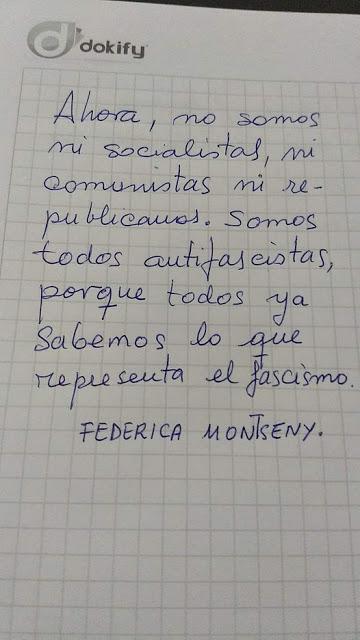 dokify
Ahora, no somos
ni socialistas, ni
comunistas ni re-
publicanos. Somos
todos antifascistas,
porque todos ya
sabemos lo que
representa el fascismo.
FEDERICA MONTSENY.